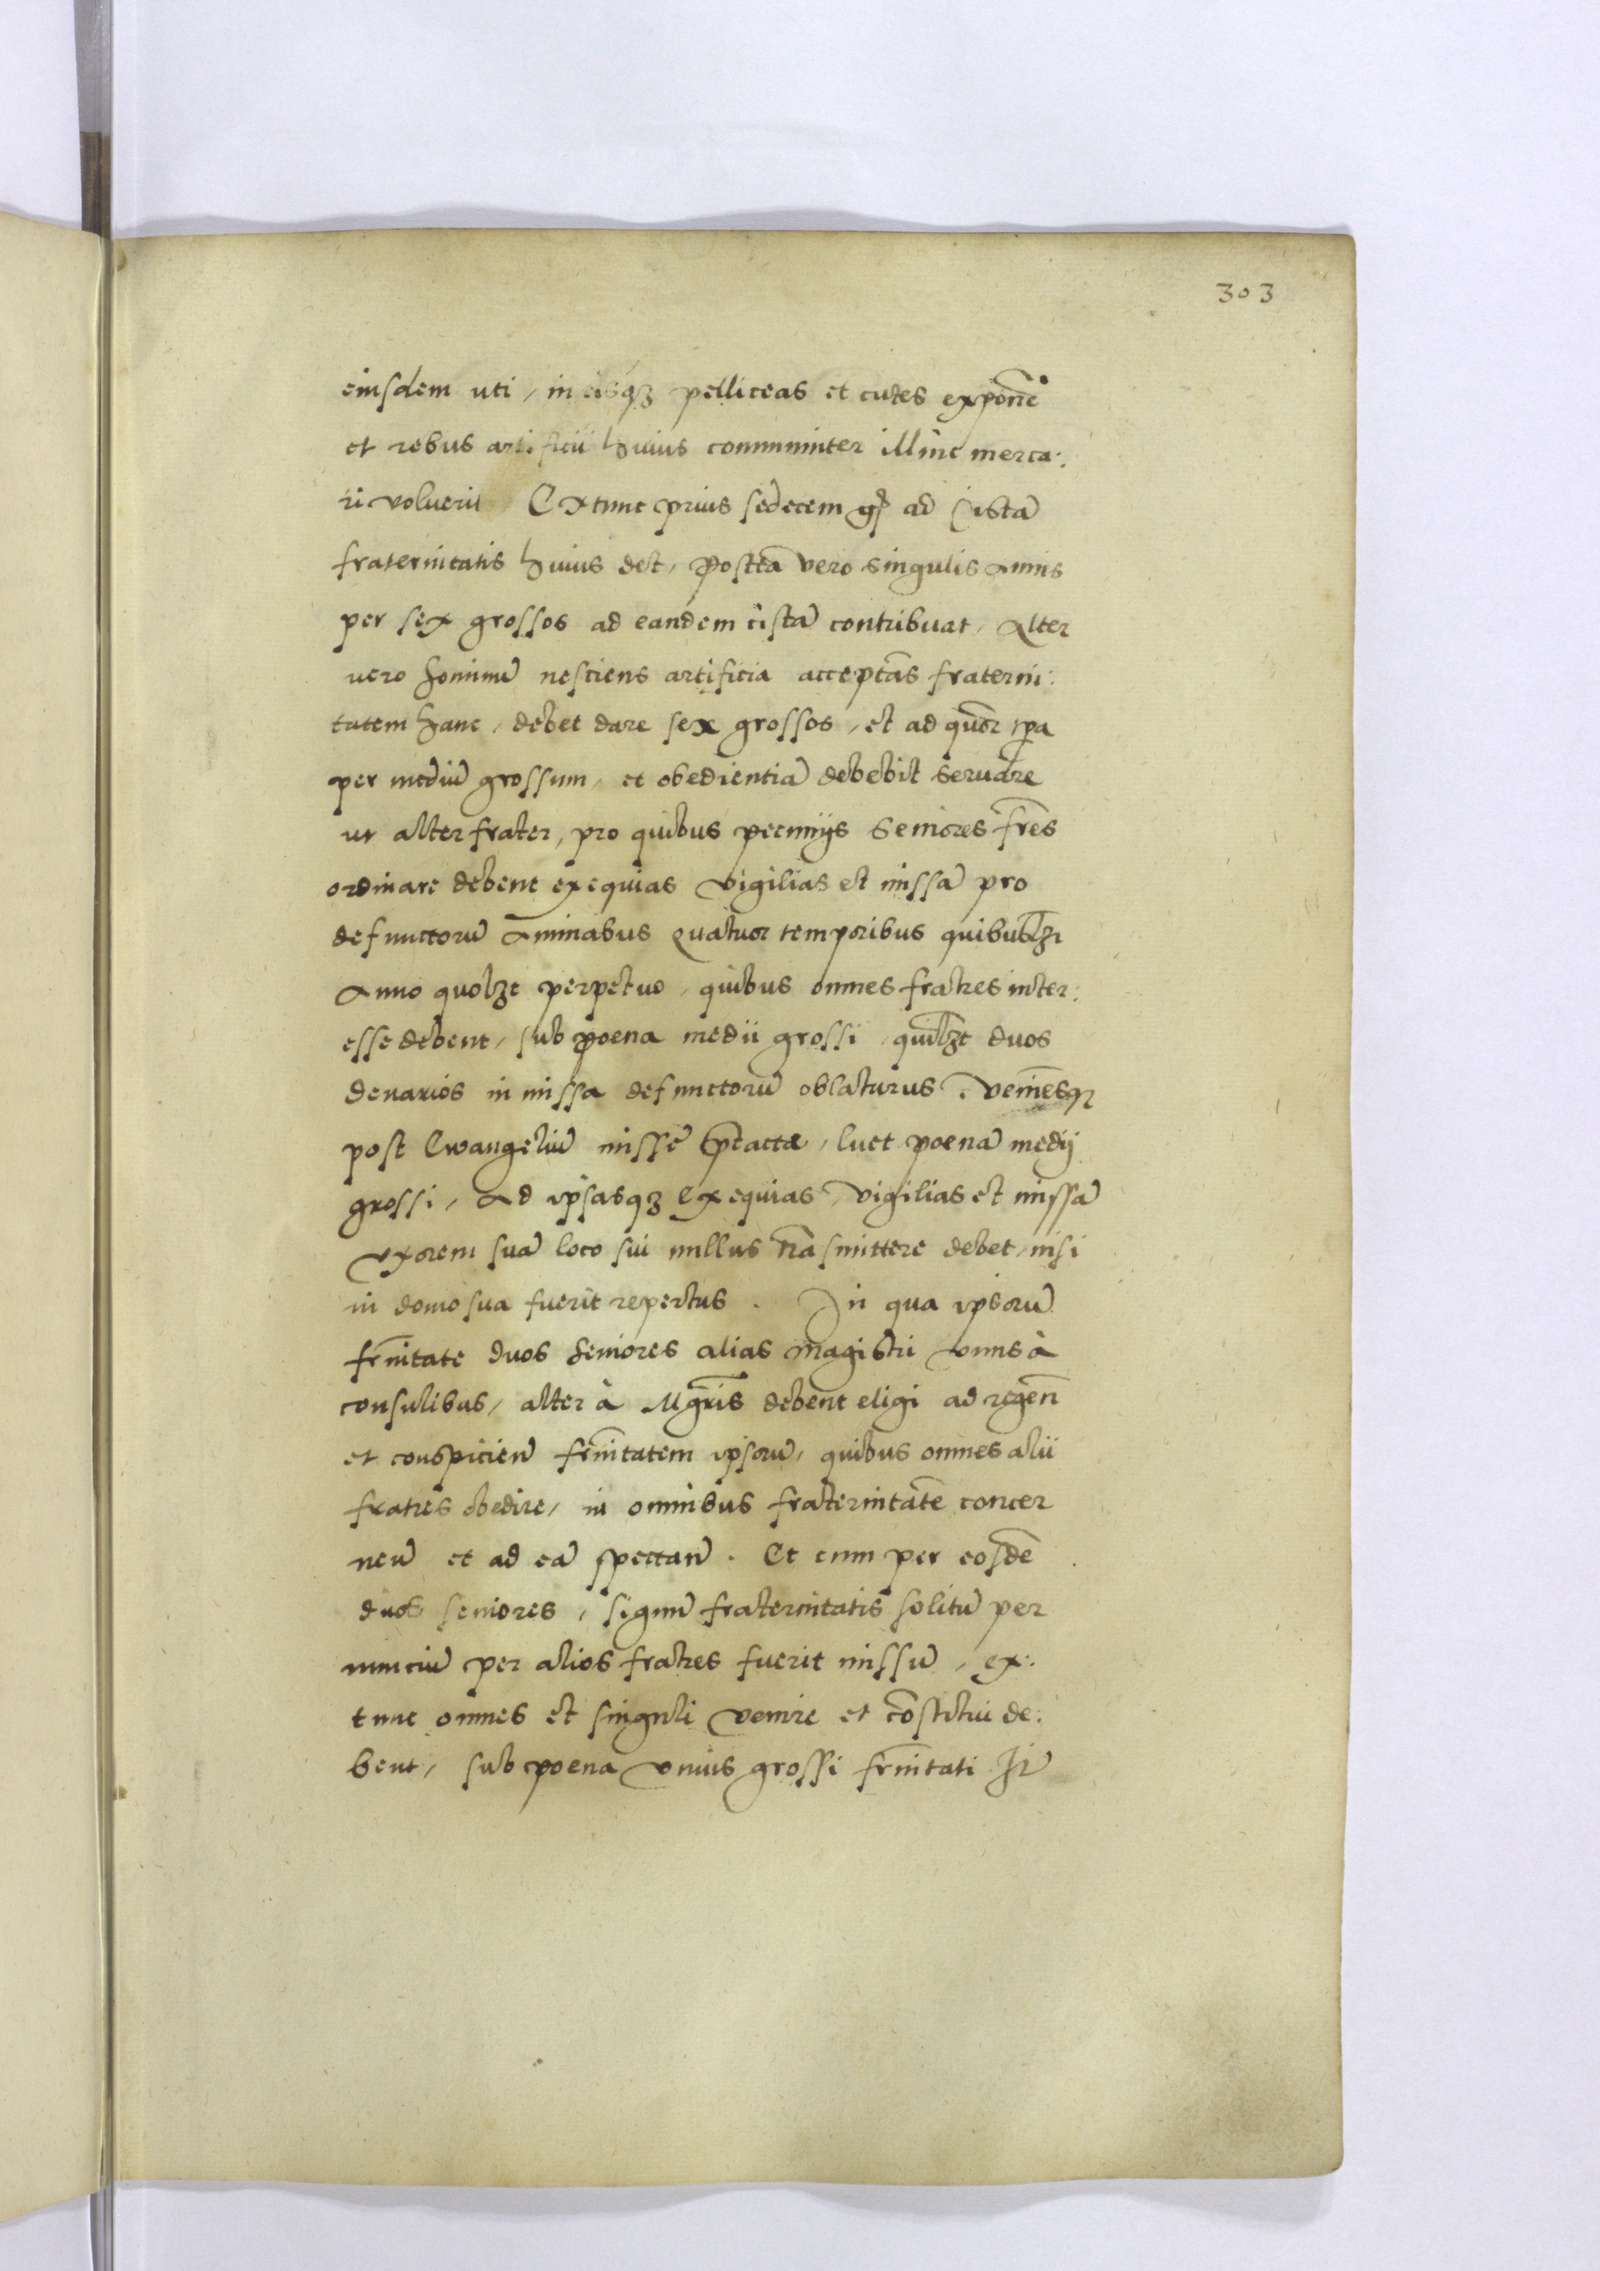 303
eiusdem uti, in eisq₃ pelliceas et cutes exponē
et rebus artificii huius communiter illinc merca:
ri voluerit Extunc prius sedecem gͬ ad Cistā
fraternitatis huius det, Posteā vero singulis annis
per sex grossos ad eandem cistā contribuat, Alter
vero hominū nesciens artificia acceptās fraterni:
tatem hanc, debet dare sex grossos, et ad quōr tp̄a
per mediū grossum, et obedientiā debebit seruare
ut alter frater, pro quibus pecuniis Seniores frēs
ordinare debent exequias vigilias et missā pro
defunctorū Animabus Quatuor temporibus quibuslꝫt
Anno quolꝫt perpetuo, quibus omnes fratres inter:
esse debent, sub poena medii grossi, quilꝫt duos
denarios in missa defunctorū oblaturus. Veniēsq₃
post Ewangeliū missē p̄tactæ, luet poenā medij
grossi, Ad ipsasq₃ Exequias, vigilias et missā
Uxorem suā loco sui nullus trāsmittere debet, nisi
in domo sua fuerit repertus. In qua ipsorū
frn̄itate duos seniores alias magistri vnus à
consulibus, alter à Mgr̄is debent eligi ad regen̄
et conspicien̄ frn̄itatem ipsorū, quibus omnes alii
fratres obedire, in omnibus fraternitatē concer
nen̄ et ad eā spectan̄. Et cum per eosdē
duos seniores, signū fraternitatis solitū per
nunciū per alios fratres fuerit missū, ex:
tunc omnes et singuli venire et cōstitui de:
bent, sub poena vnius grossi frn̄itati Itē